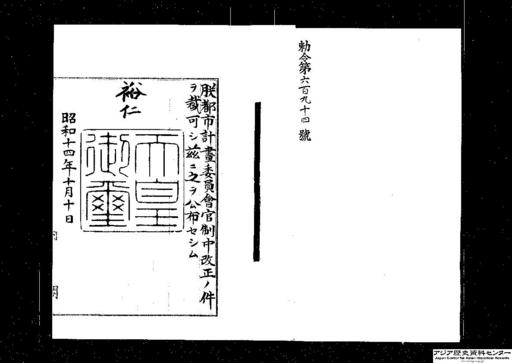 勅令第六百九十四號
朕都市計畫委員會官制中改正ノ件
ヲ裁可シ茲ニ之ヲ公布セシム
裕仁
天皇
御璽
昭和十四年十月十日
アジア歴史資料センター
Japan Center for Asian Historical Records